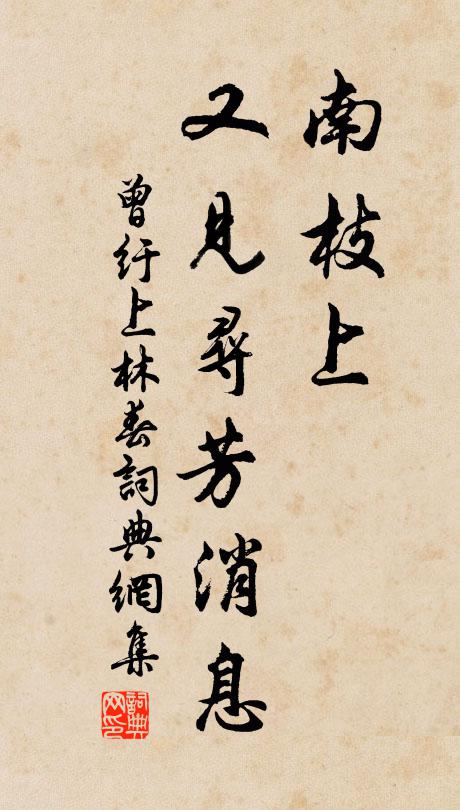 南枝上
又見尋芳消息
曾紆上林春詞典網集
詞典
网印